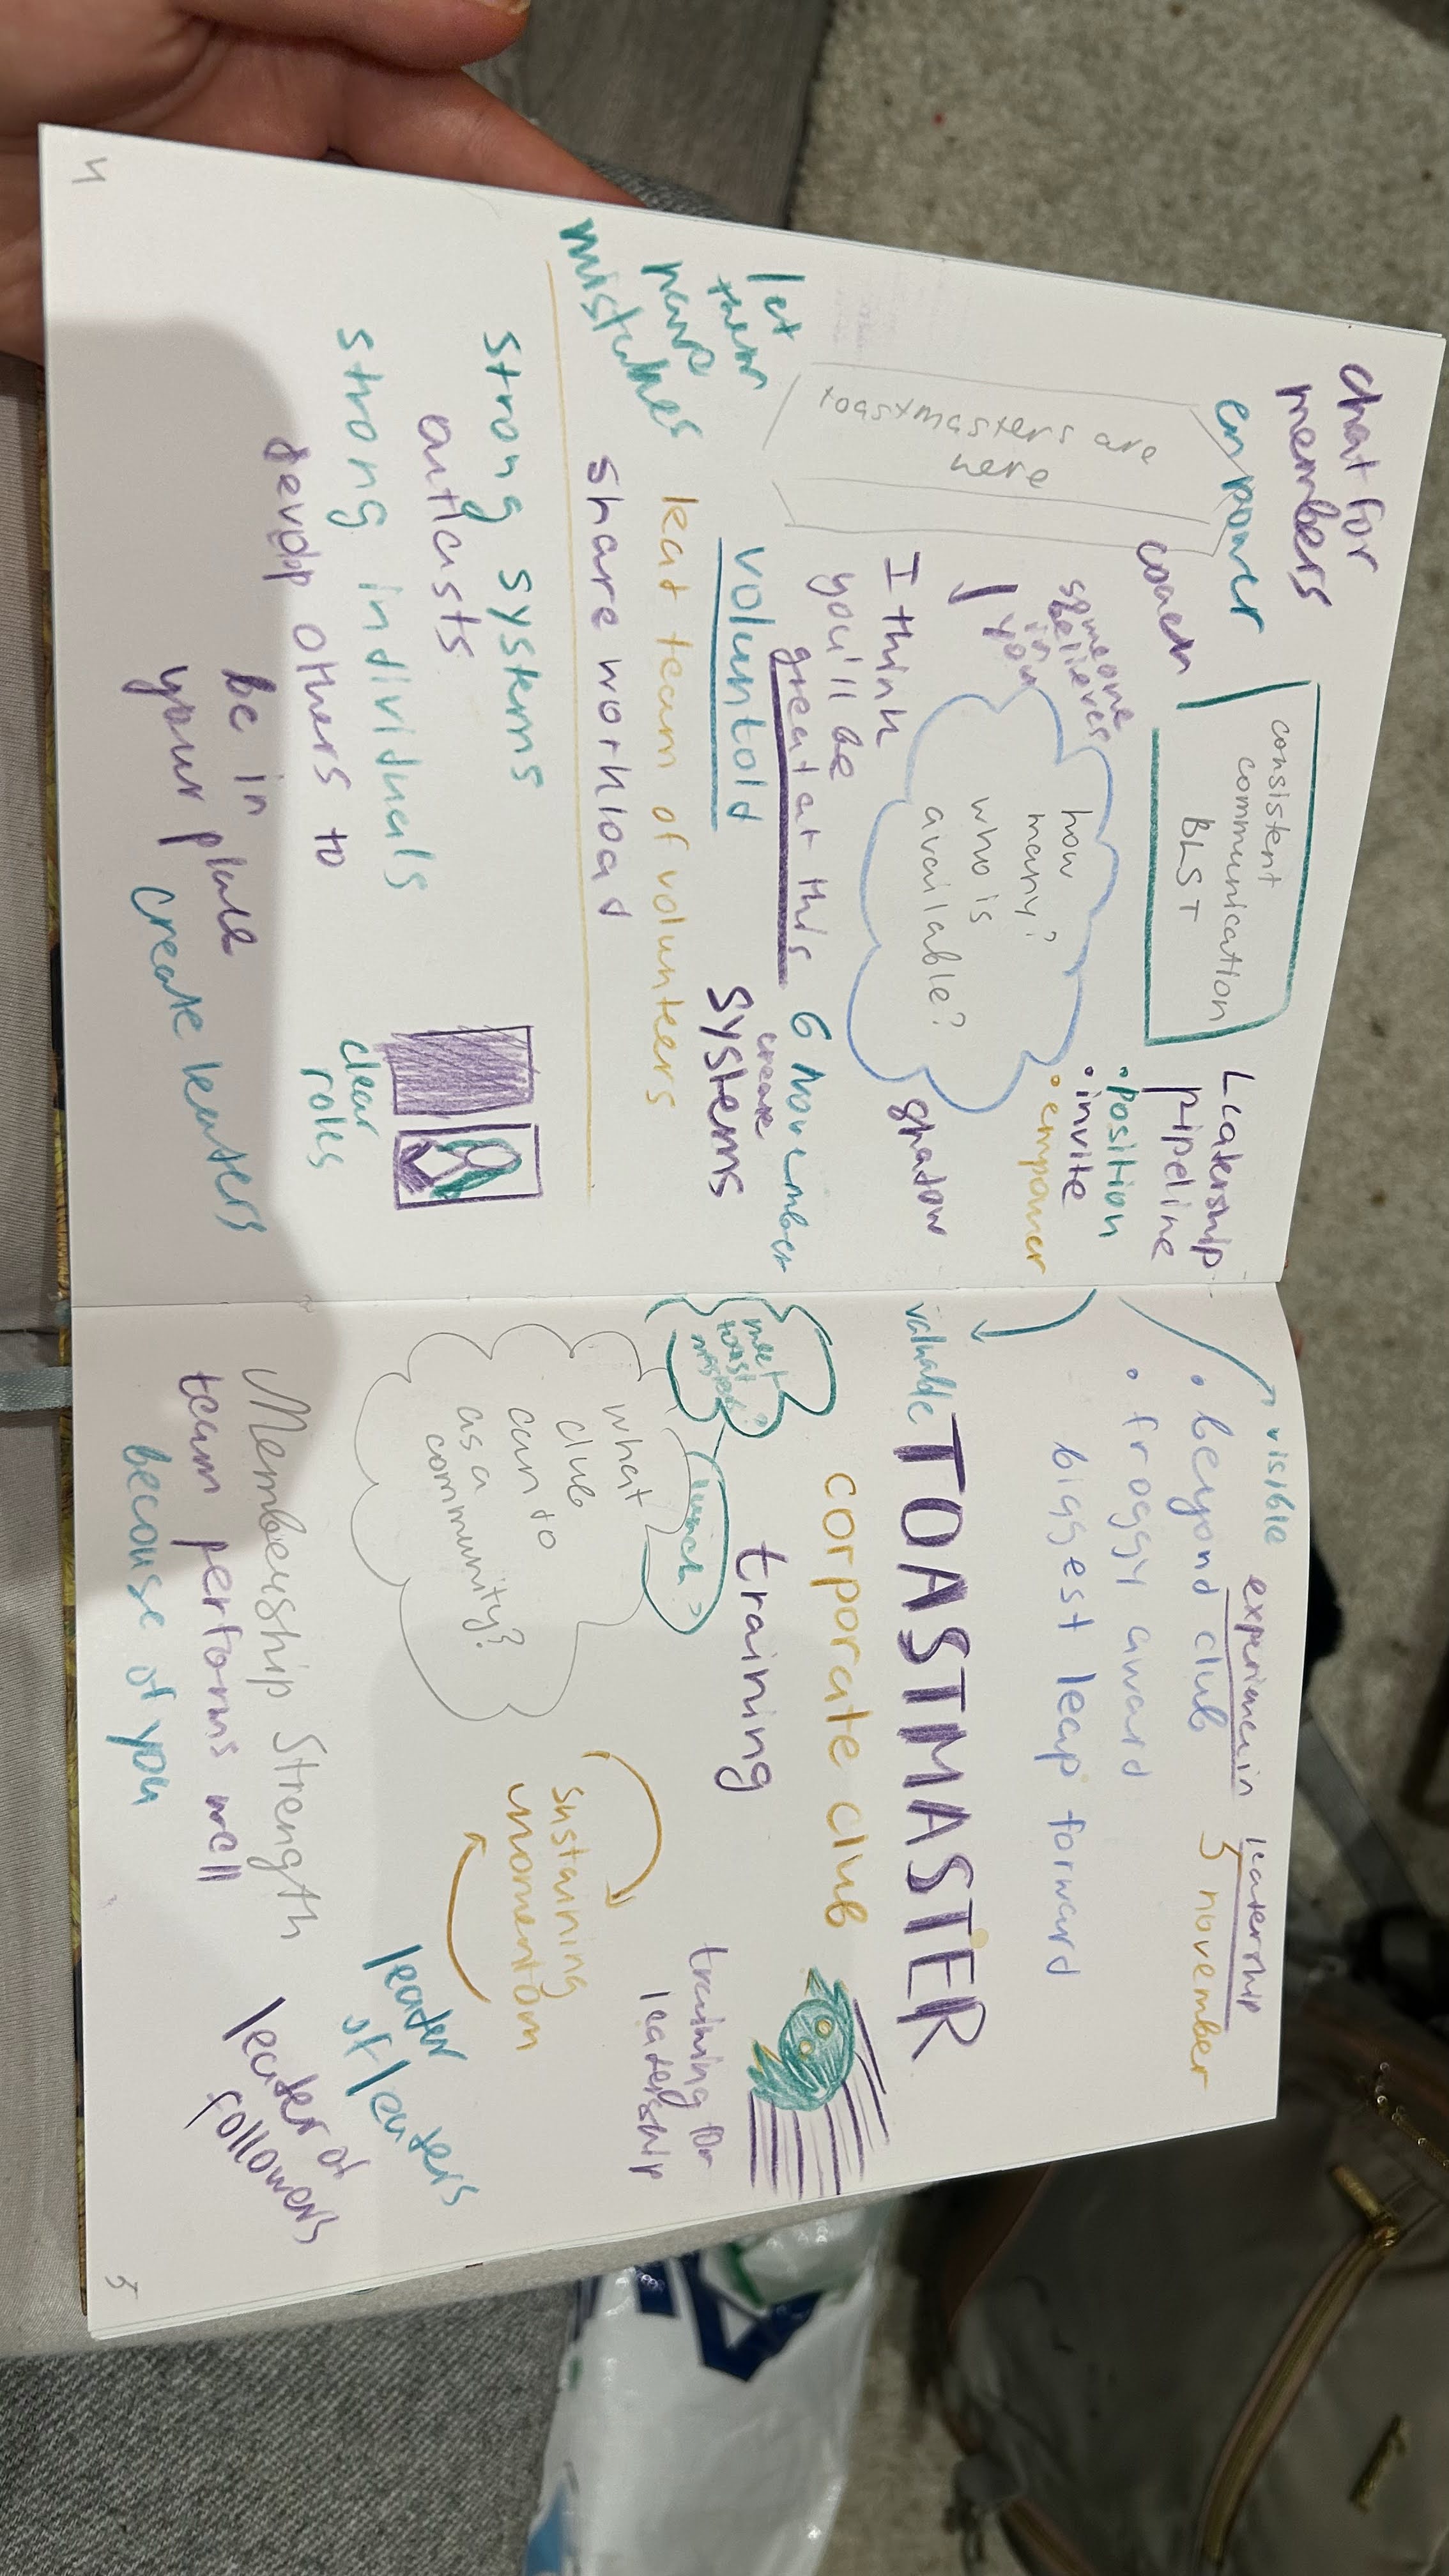 chat for
members
empower
coach
consistent
communication
BLST
Leadership
pipeline
• position
• invite
• empower
toastmasters are
here
someone
believes
in
you
how
many?
who is
available?
shadow
I think
you'll be
great at this
6 november
let
them
make
mistakes
voluntold
create
systems
lead team of volunteers
share workload
strong systems
outlasts
strong individuals
develop others to
be in
your place
create leaders
clear
roles
4
visible
experience in
leadership
• beyond club
5 november
• froggy award
biggest leap forward
valuable
TOASTMASTER
corporate club
meet
toast
masters?
lunch?
training
training for
leadership
what
club
can do
as a
community?
sustaining
momentom
leader
of leaders
leader of
followers
Membership Strength
team performs well
because of you
5